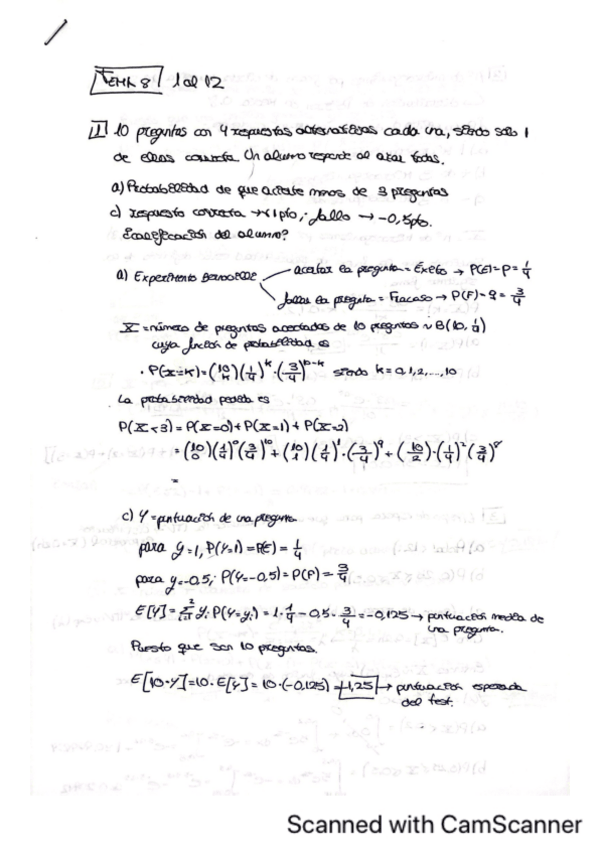 TEMA 8 1 al 12
1 10 preguntas con 4 respuestas alternativas cada una, siendo solo 1
de ellas correcta. Un alumno responde al azar todas.
a) Probabilidad de que acierte menos de 3 preguntas
c) respuesta correcta → +1 pto, fallo → -0,5 pto.
¿calificación del alumno?
a) Experimento Bernoulli acertar la pregunta = Éxito → P(E)=P=1/4
fallar la pregunta = Fracaso → P(F)=q=3/4
X = número de preguntas acertadas de 10 preguntas ~ B(10, 1/4)
cuya función de probabilidad es
· P(X=K)=(10 K)(1/4)^K·(3/4)^10-K siendo K=0,1,2,...,10
La probabilidad pedida es
P(X<3)=P(X=0)+P(X=1)+P(X=2)
=(10 0)(1/4)^0(3/4)^10+(10 1)(1/4)·(3/4)^9+(10 2)·(1/4)^2(3/4)^8
=
c) Y = puntuación de una pregunta
para y=1, P(Y=1)=P(E)=1/4
para y=-0,5; P(Y=-0,5)=P(F)=3/4
E[Y]=Σ yi P(Y=yi)=1·1/4-0,5·3/4=-0,125→ puntuación media de
una pregunta.
Puesto que son 10 preguntas.
E[10·Y]=10·E[Y]=10·(-0,125)=-1,25→ puntuación esperada
del test.
Scanned with CamScanner